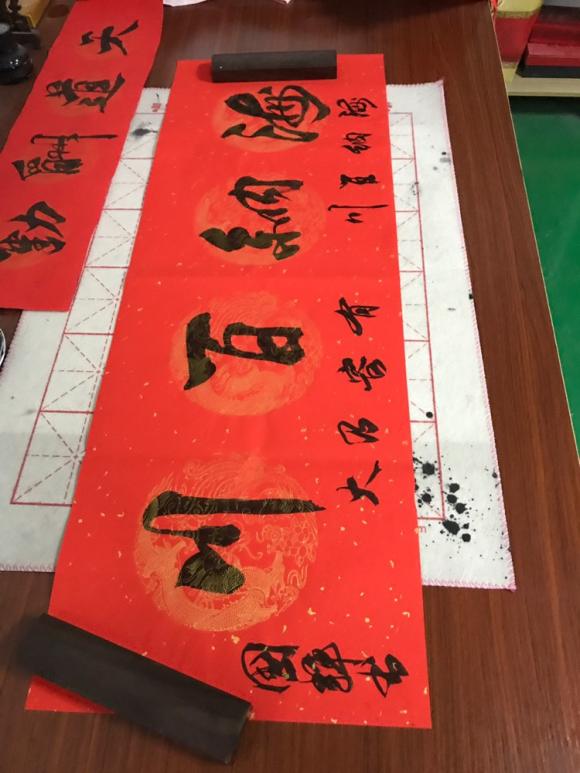 天道酬勤
海納百川
海納百川
有容乃大